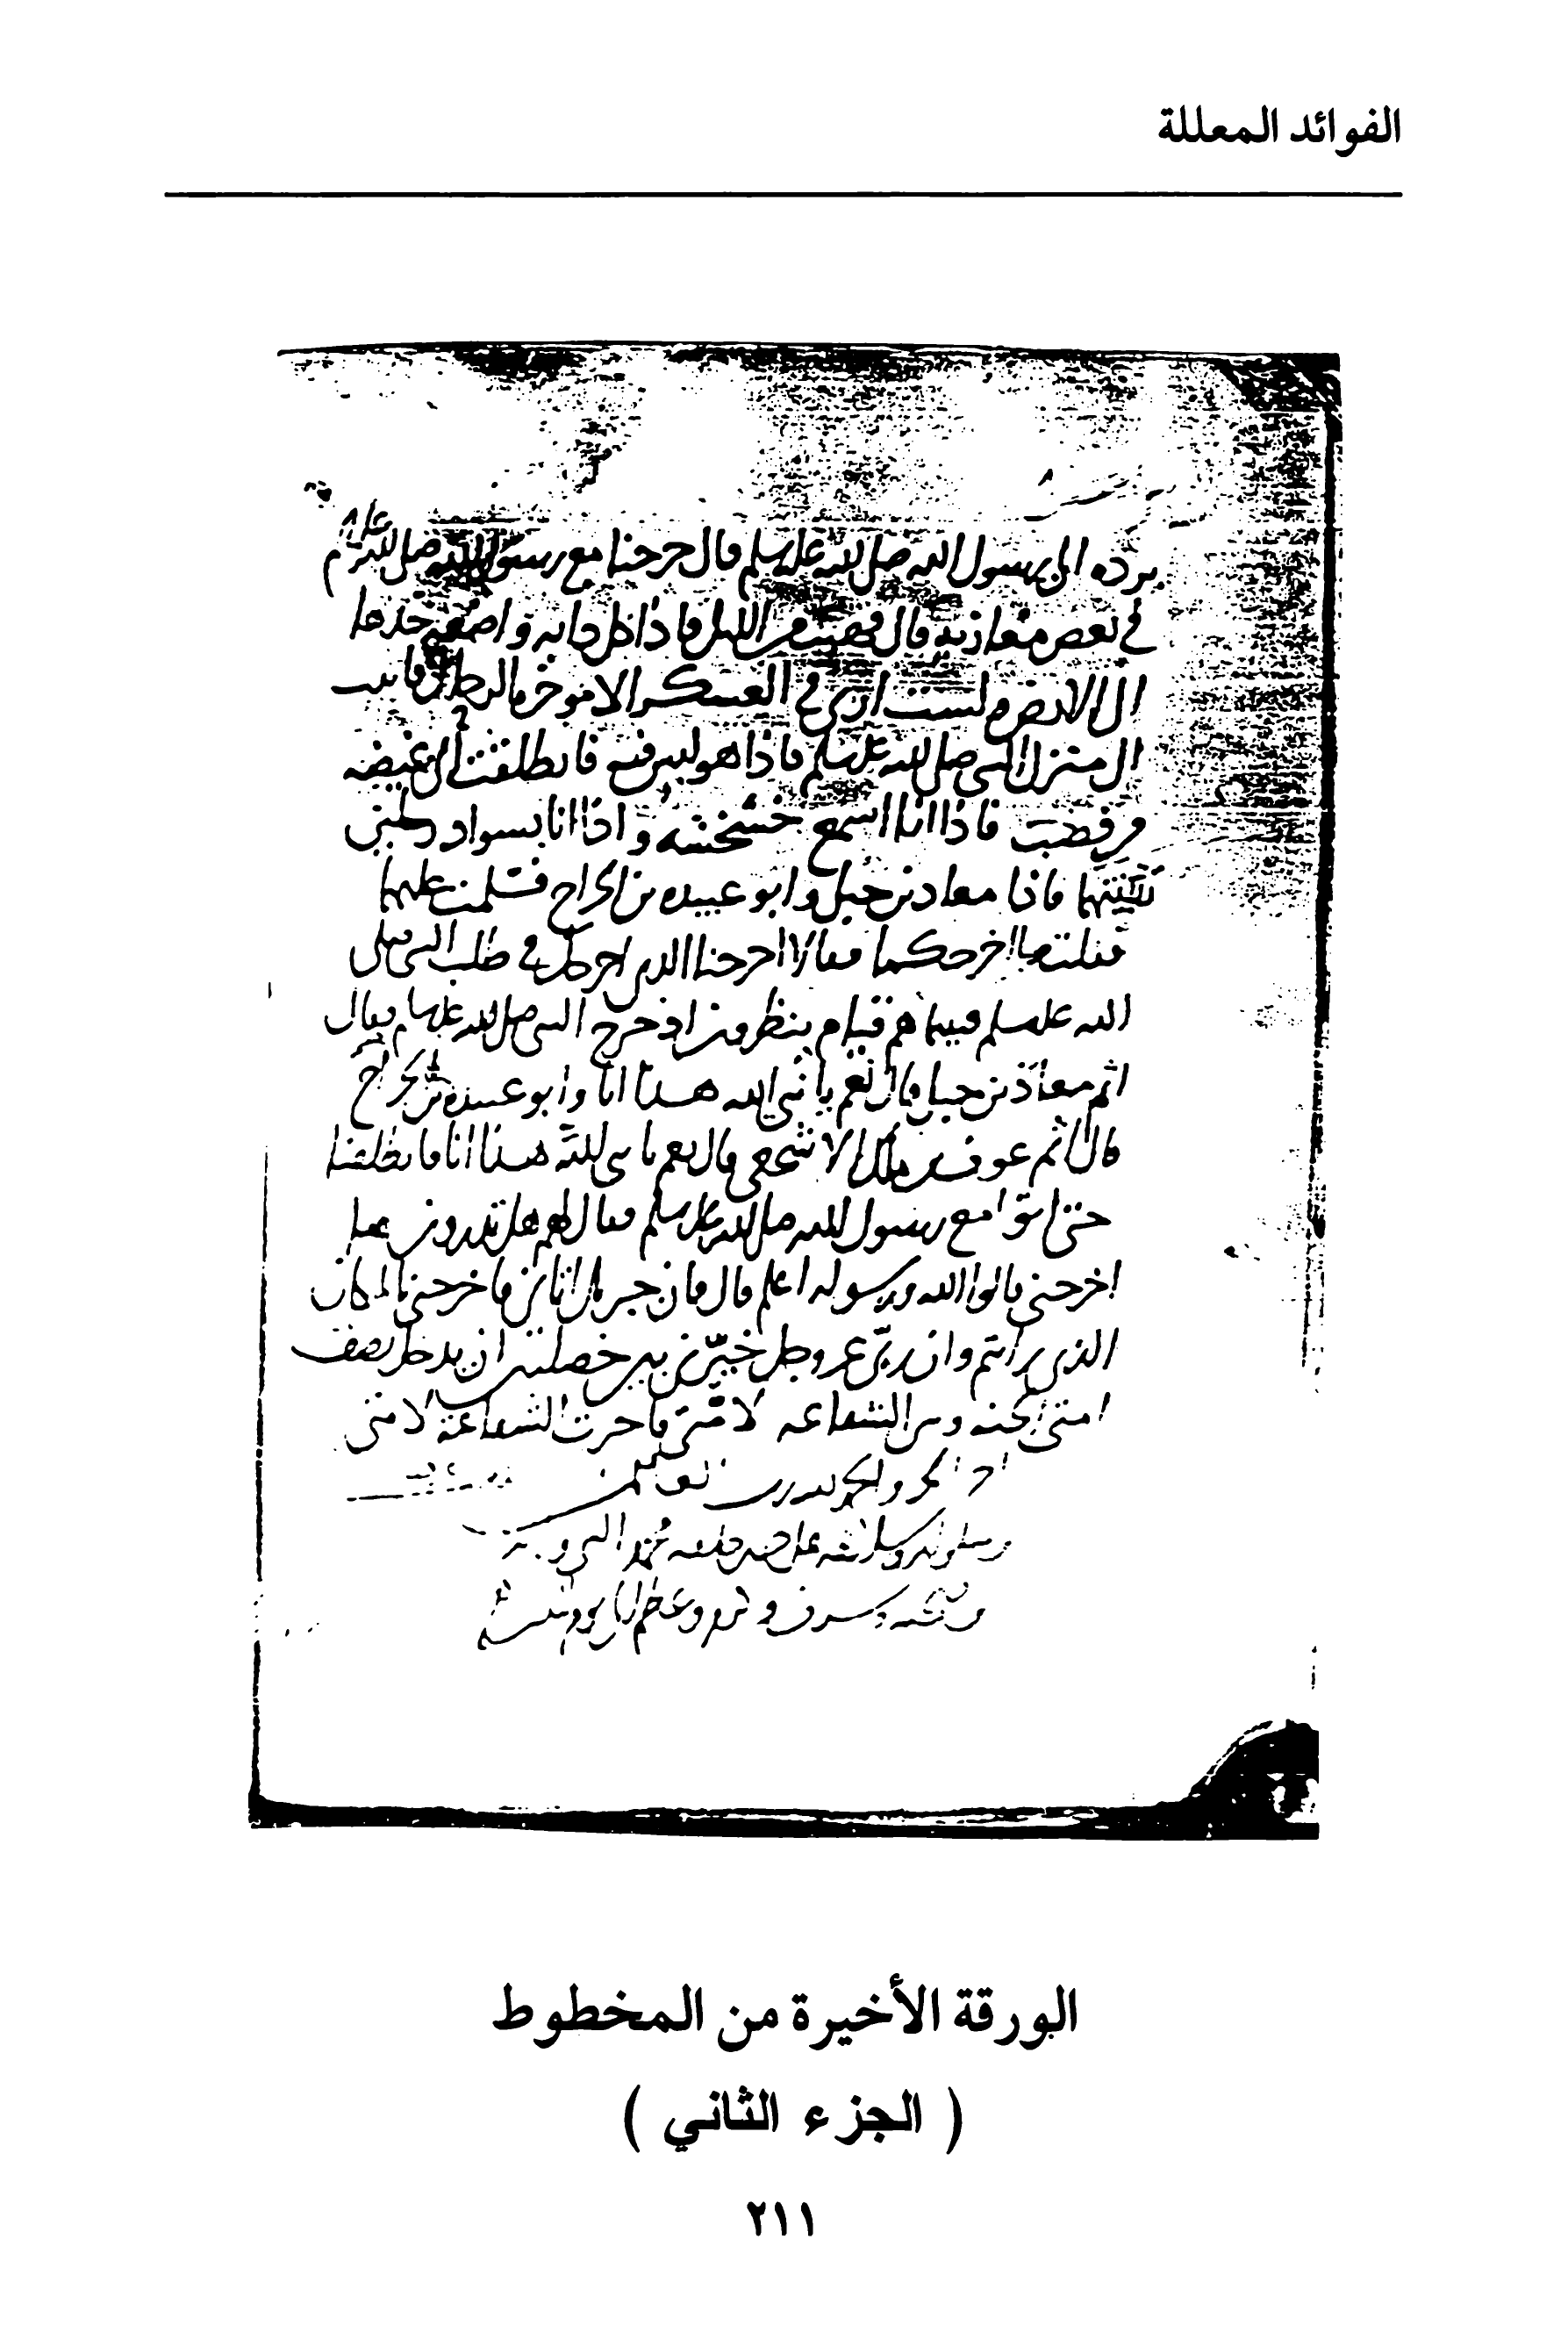 الفوائد المعللة
برده الى رسول الله صلى الله عليه وسلم قال خرجنا مع رسول الله صلى الله عليه وسلم
في بعض مغازيه قال فهببت من الليل فاذا كل دابه واضعه خدها
الى الارض ولست ارى في العسكر الا موخره الرحل فاتيت
الى منزل النبي صلى الله عليه وسلم فاذا هو ليس فيه فانطلقت الى غيضه
من قضب فاذا انا اسمع خشخشه واذا انا بسواد
فاذا معاذ بن جبل وابو عبيده بن الجراح فسلمت عليهما
فقلت ما اخرجكما فقالا اخرجنا الذي اخرجك في طلب النبي صلى
الله عليه وسلم فبينما هم قيام ينظرون اذ خرج النبي صلى الله عليه وسلم فقال
اثم معاذ بن جبل قال نعم يا نبي الله هذا انا وابو عبيده بن الجراح
قال اثم عوف بن مالك الاشجعي قال نعم يا نبي الله هذا انا فانطلقنا
حتى مع رسول الله صلى الله عليه وسلم فقال لهم هل تدرون بما
اخرجني قالوا الله ورسوله اعلم قال فان جبريل اتاني فاخرجني بالمكان
الذي رايتم وان ربي عز وجل خيرني بين خصلتين ان يدخل نصف
امتي الجنه وبين الشفاعه لامتي فاخرت الشفاعة لامتي
والحمد لله رب العالمين
محمد النبي
وشرف وكرم وعظم الى يوم الدين
الورقة الأخيرة من المخطوط
( الجزء الثاني )
٢١١